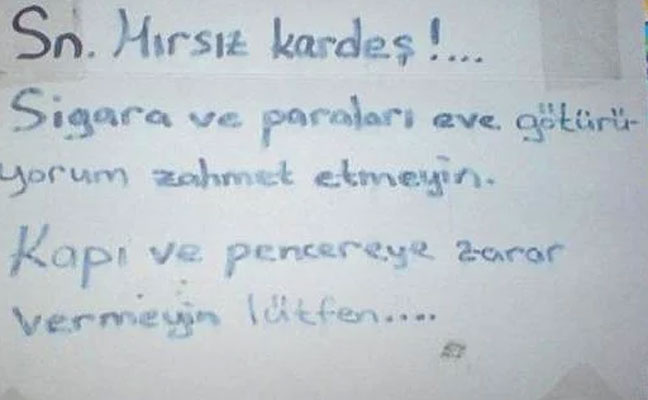 Sn. Hırsız kardeş!...
Sigara ve paraları eve götürü-
yorum zahmet etmeyin.
Kapı ve pencereye zarar
vermeyin lütfen....